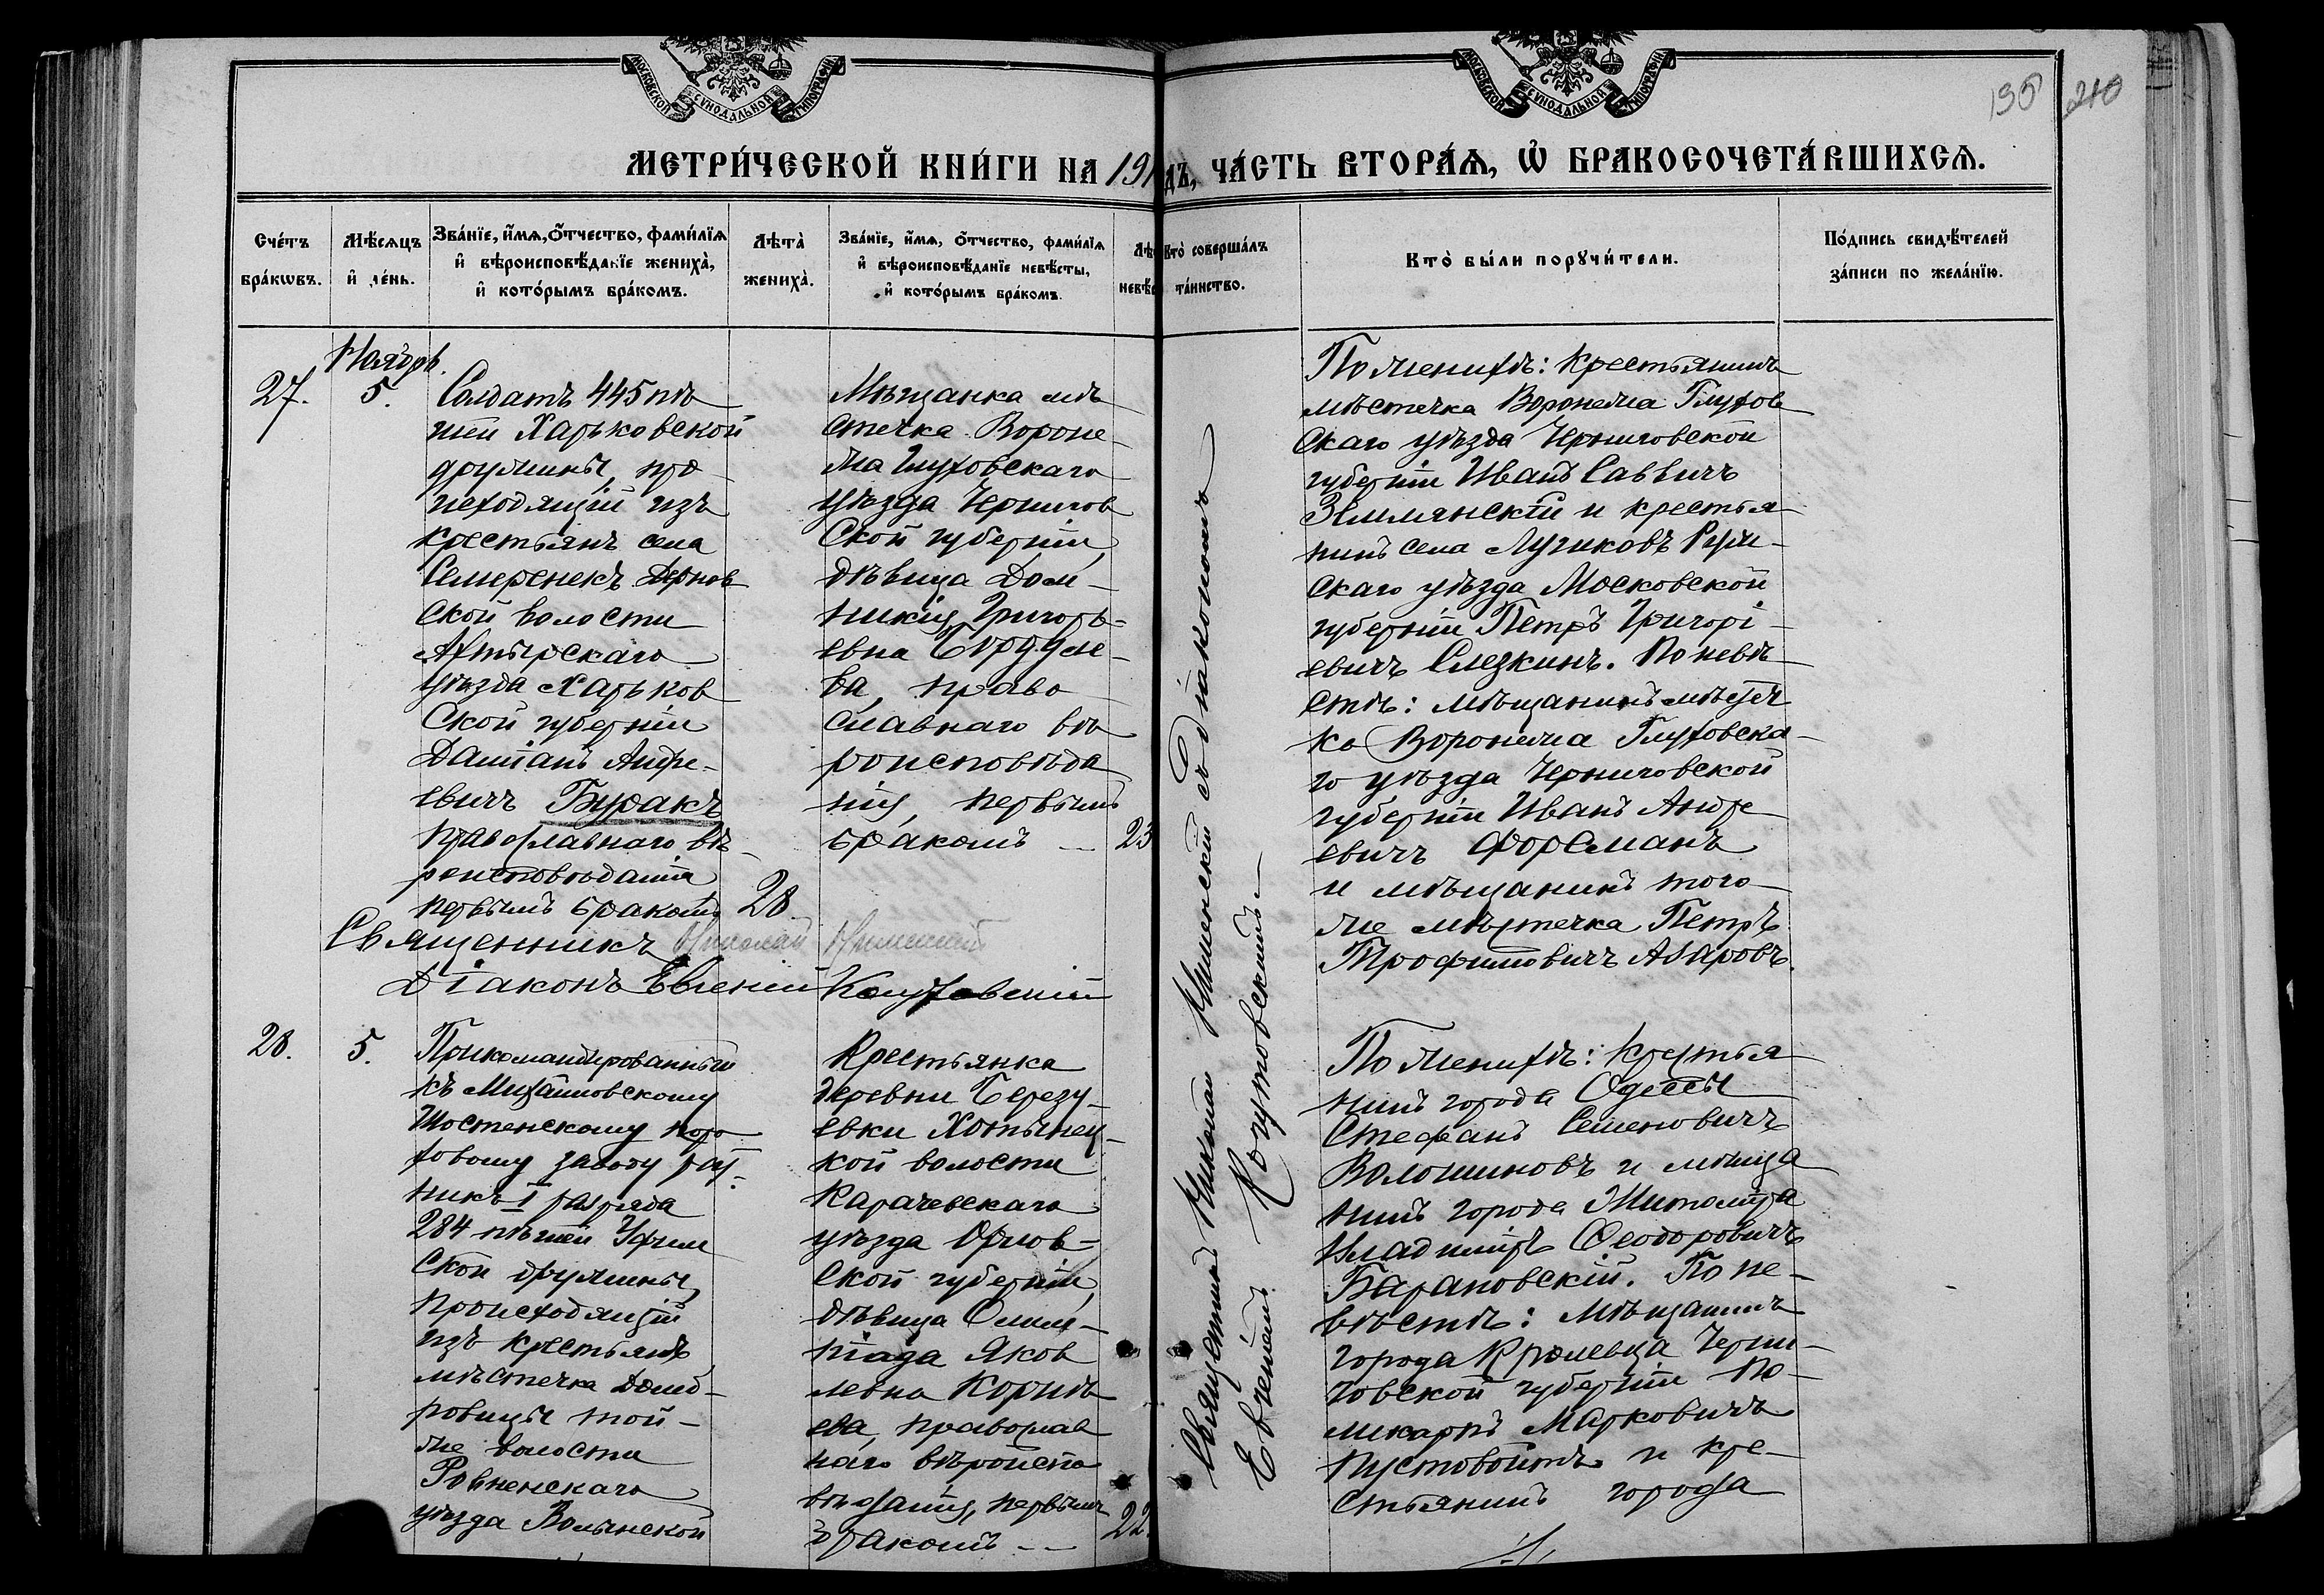 МОСКОВСКОЙ СУНОДАЛЬНОЙ ТИПОГРАФІИ
МОСКОВСКОЙ СУНОДАЛЬНОЙ ТИПОГРАФІИ
195 210
МЕТРИ́ЧЕСКОЙ КНИ́ГИ НА 191
дъ, ЧА́СТЬ ВТОРА́Ѧ, Ѽ БРАКОСОЧЕТА́ВШИХСѦ.
Сче́тъ
бра́кѡвъ.
Мѣ́сѧцъ
и҆ де́нь.
Зва́нїе, и҆́мѧ, ѻ҆́тчество, фами́лїѧ
и҆ вѣроисповѣ́данїе жениха̀,
и҆ кото́рымъ бра́комъ.
Лѣта̀
жениха̀.
Зва́нїе, и҆́мѧ, ѻ҆́тчество, фами́лїѧ
и҆ вѣроисповѣ́данїе невѣ́сты,
и҆ кото́рымъ бра́комъ.
Лѣ
невѣ́с
Кто̀ соверша́лъ
та́инство.
Кто̀ бы́ли порꙋчи́тели.
По́дпись свидѣ́телей
за́писи по жела́нїю.
Ноябрь.
27.
5.
Солдатъ 445 пѣ
шей Харьковской
дружины, про
исходящій изъ
крестьянъ села
Семеренекъ Дернов
ской волости
Ахтырскаго
уѣзда Харьков
ской губерніи
Даміанъ Андре
евичъ Буракъ
православнаго вѣ-
роисповѣданія
первымъ бракомъ
28
Мѣщанка мѣ
стечка Вороне-
жа Глуховскаго
уѣзда Чернигов
ской губерніи,
дѣвица Дом-
никія Григорь-
евна
ва, право
славнаго вѣ
роисповѣда
нія, первымъ
бракомъ —
23
Священникъ Николай
Діаконъ Евгеній
Священникъ Николай съ Діакономъ
Евгеніемъ
По женихѣ: крестьянинъ
мѣстечка Воронежа Глухов
скаго уѣзда Черниговской
губерніи Иванъ Саввичъ
Землянскій и крестья
нинъ села Лучиковъ Руз-
скаго уѣзда Московской
губерніи Петръ Григорі-
евичъ Слезкинъ. По невѣ-
стѣ: мѣщанинъ мѣстеч
ка Воронежа Глуховска-
го уѣзда Черниговской
губерніи Иванъ Андре
евичъ Форсманъ
и мѣщанинъ того-
же мѣстечка Петръ
Трофимовичъ Азаровъ.
28.
5.
Прикомандированный
къ Михайловскому
Шостенскому поро
ховому заводу рат-
никъ I разряда
284 пѣшей Уфим
ской дружины,
происходящій
изъ крестьянъ
мѣстечка Домб-
ровицы той-
же волости
Ровненскаго
уѣзда Волынской
Крестьянка
деревни Березу-
евки Хотынец-
кой волости
Карачевскаго
уѣзда Орлов-
ской губерніи,
дѣвица Олим-
піада Яков
левна Корнѣ
ева, православ
наго вѣроиспо
вѣданія, первымъ
бракомъ —
22.
По женихѣ: крестья
нинъ города Одессы
Стефанъ Семеновичъ
Волошиновъ и мѣща
нинъ города Житоміра
Владиміръ Ѳеодоровичъ
Барановскій. По не-
вѣстѣ: мѣщанинъ
города Кролевца Черни-
говской губерніи По-
ликарпъ Марковичъ
Пустовойтъ и кре-
стьянинъ города